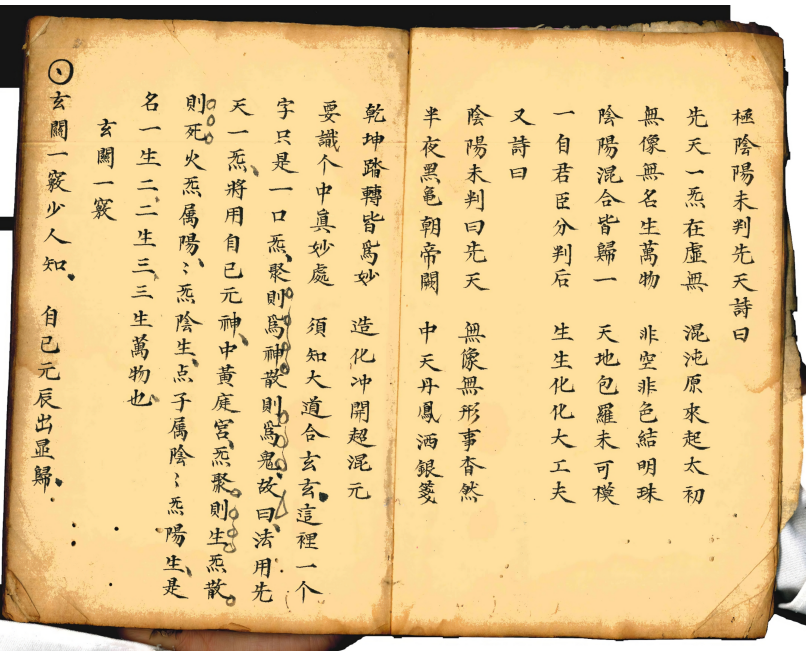 極陰陽未判先天詩曰
先天一炁在虛無　混沌原來起太初
無像無名生萬物　非空非色結明珠
陰陽混合皆歸一　天地包羅未可模
一自君臣分判后　生生化化大工夫
又詩曰
陰陽未判曰先天　無像無形事杳然
半夜黑龟朝帝闕　中天丹鳳洒銀箋
乾坤踏轉皆爲妙　造化冲開超混元
要識个中真妙處　須知大道合玄玄這裡一个
字只是一口炁、聚則爲神散則爲鬼故曰、法用先
天一炁、將用自己元神、中黃庭宮、炁聚則生炁散
則死火炁属陽、〻炁陰生、点子属陰〻炁陽生、是
名一生二、二生三、三生萬物也、
玄關一竅
玄關一竅少人知。　自己元辰出显歸。